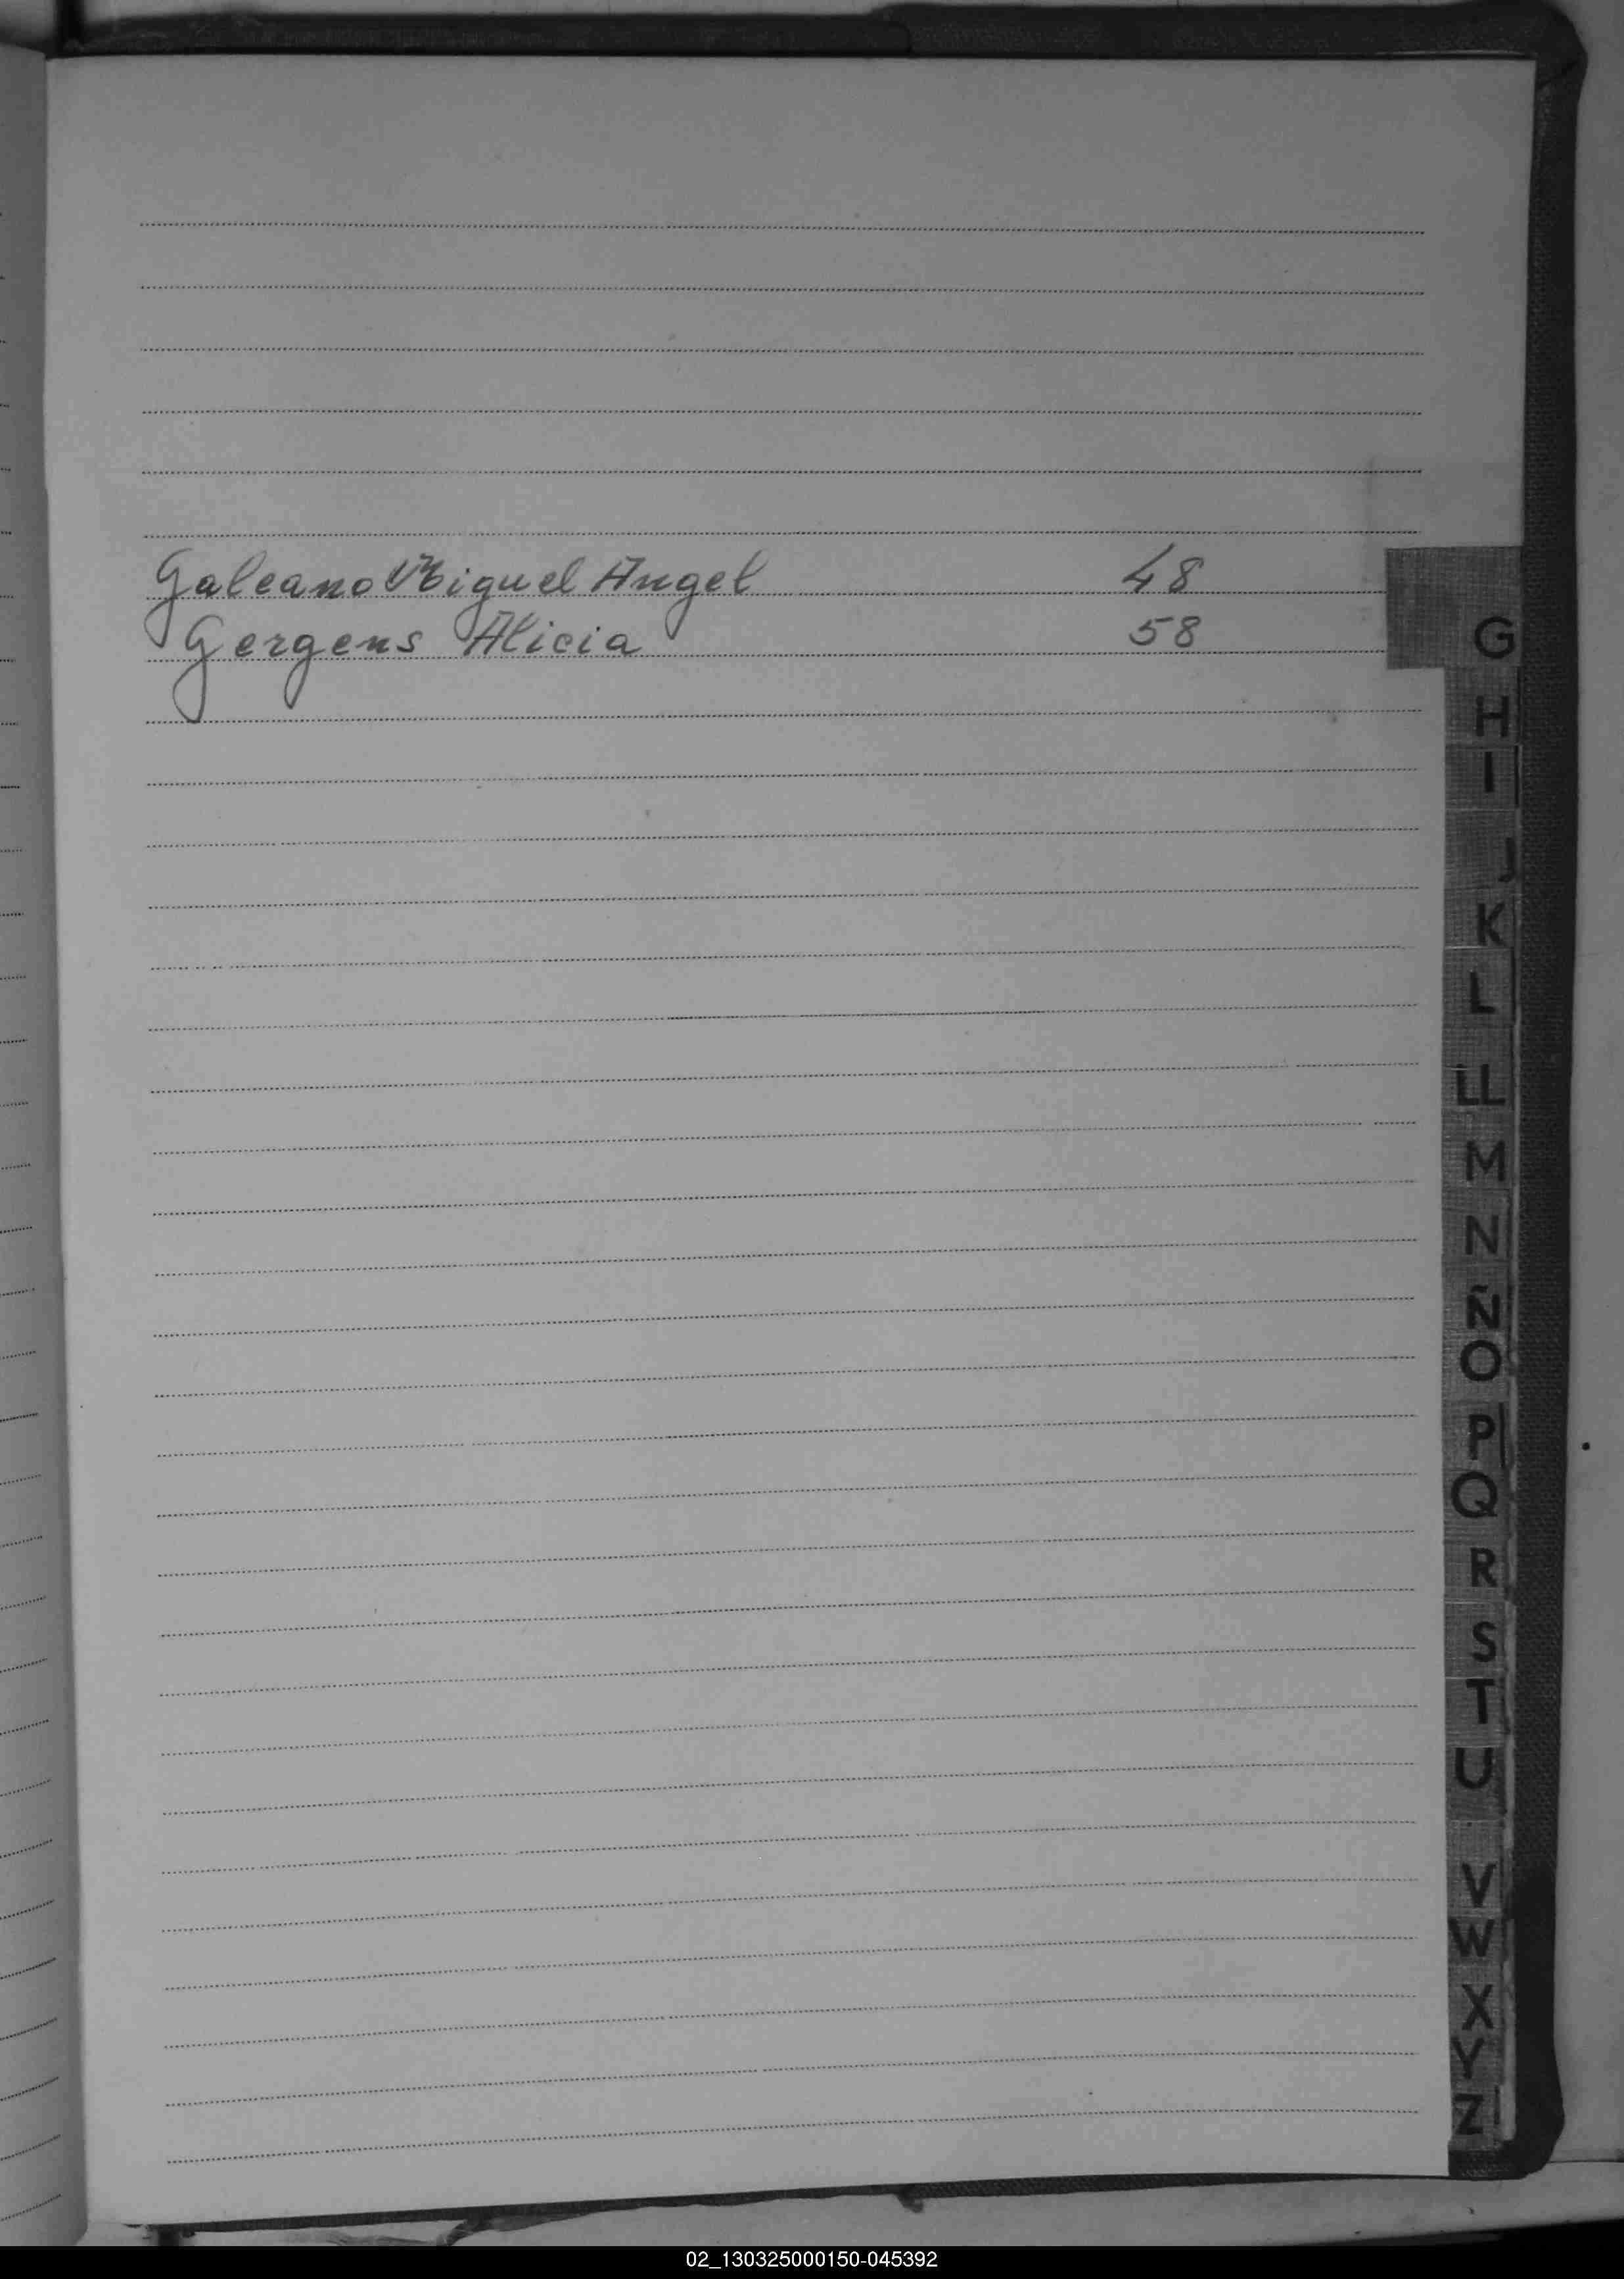 Galeano Miguel Angel 48
Gergens Alicia 58
G
H
I
J
K
L
LL
M
N
Ñ
O
P
Q
R
S
T
U
V
W
X
Y
Z
02_130325000150-045392